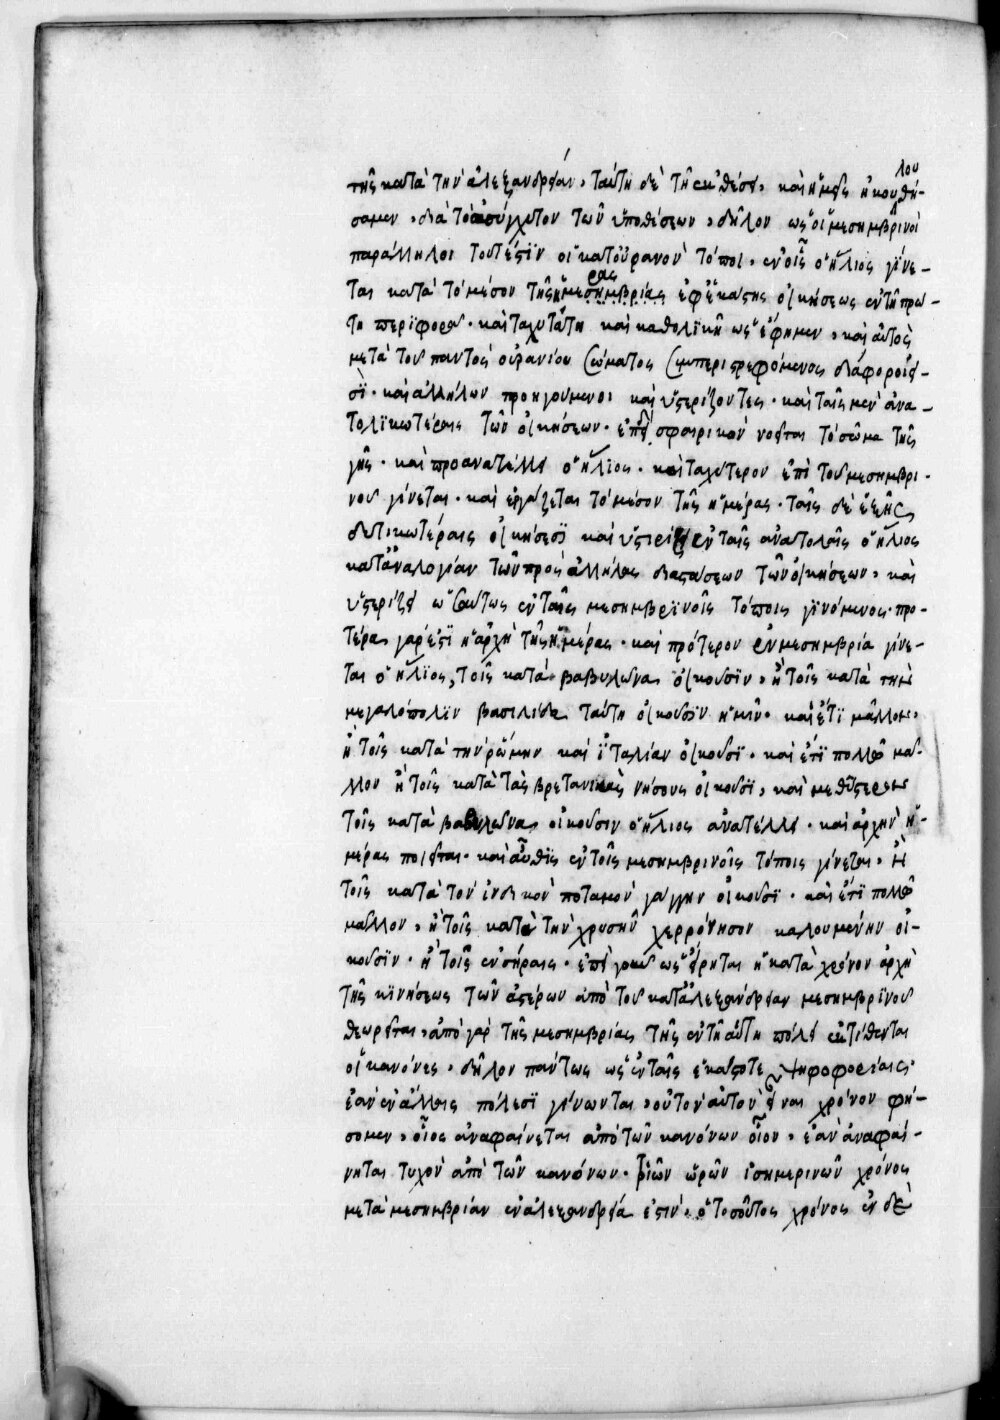 τῆς κατὰ τὴν ἀλεξανδρείαν, ταύτη δὲ τῆ ἐκθέσει, καὶ ἡμεῖς ἠκολουθή-
σαμεν, διὰ τὸ ἀσύγχυτον τῶν ὑποθέσεων, δῆλον ὡς οἱ μεσημβρινοὶ
παράλληλοι τουτέστϊν οἱ κατοὐρανὸν τόποι, ἐν οἷς ὁ ἥλιος γίνε-
ται κατὰ τὸ μέσον τῆς ἡμέρας ἐφ ἑκάστης οἰκήσεως ἐν τῆ πρώ-
τη περϊφορᾶ, καὶ ταχυτάτη καὶ καθολϊκῆ ὡς ἔφημεν, καὶ αὐτὸς
μετὰ τοῦ παντὸς οὐρανίου σώματος συμπεριστρεφόμενος διάφοροί εἰ-
σϊ, καὶ ἀλλήλων προηγούμενοι καὶ ὑστερίζοντες, καὶ ταῖς μὲν ἀνα-
τολϊκωτέραις τῶν οἰκήσεων, ἐπεὶ σφαιρικὸν νοεῖται τὸ σῶμα τῆς
γῆς, καὶ προανατέλλει ὁ ἥλϊος, καὶ ταχύτερον ἐπὶ τοῦ μεσημβρι-
νοῦ γίνεται, καὶ ἐργάζεται τὸ μέσον τῆς ἡμέρας, ταῖς δὲ ἑξῆς
δυτικωτέραις οἰκήσεσϊ καὶ ὑστερίζει ἐν ταῖς ἀνατολαῖς ὁ ἥλιος
κατἀναλογίαν τῶν πρὸς ἀλλήλας διαστάσεων τῶν οἰκήσεων, καὶ
ὑστερίζει ὡσαύτως ἐν ταῖς μεσημβρϊνοῖς τόποις γϊνόμενος, προ-
τέρα γάρ ἐστϊ ἡ ἀρχὴ τῆς ἡμέρας, καὶ πρότερον ἐν μεσημβρία γίνε-
ται ὁ ἥλϊος, τοῖς κατὰ βαβυλῶνα οἰκοῦσϊν, ἢ τοῖς κατὰ τὴν
μεγαλόπολϊν βασιλίδα ταύτη οἰκοῦσϊν ἡμῖν, καὶ ἔτϊ μᾶλλον,
ἢ τοῖς κατὰ τὴν ῥώμην καὶ ἰταλίαν οἰκοῦσϊ, καὶ ἔτϊ πολλῶ μᾶ-
λλον ἢ τοῖς κατὰ τὰς βρετανικὰς νήσους οἰκοῦσϊ, καὶ μεθύστερον
τοῖς κατὰ βαβυλῶνα οἰκοῦσιν ὁ ἥλιος ἀνατέλλει, καὶ ἀρχὴν ἡ-
μέρας ποιεῖται, καὶ αὖθϊς ἐν τοῖς μεσημβρινοῖς τόποις γίνεται, ἢ
τοῖς κατὰ τὸν ἰνδικὸν ποταμὸν γάγγην οἰκοῦσϊ, καὶ ἔτϊ πολλῶ
μᾶλλον, ἢ τοῖς κατὰ τὴν χρυσῆν χερρόνησον καλουμένην οἰ-
κοῦσϊν, ἢ τοῖς ἐν σήραις, ἐπεὶ γοῦν ὡς εἴρηται ἡ κατὰ χρόνον ἀρχὴ
τῆς κϊνήσεως τῶν ἀστέρων ἀπὸ τοῦ κατἀλεξάνδρειαν μεσημβρϊνοῦ
θεωρεῖται, ἀπὸ γὰρ τῆς μεσημβρίας τῆς ἐν τῆ αὐτῆ πόλει ἐκτίθενται
οἱ κανόνες, δῆλον πάντως ὡς ἐν ταῖς ἑκάστοτε ψηφοφορίαις,
ἐὰν ἐν ἄλλαις πόλεσϊ γίνωνται, οὐ τὸν αὐτὸν εἶναι χρόνον φή-
σομεν, οἷος ἀναφαίνεται ἀπὸ τῶν κανόνων οἷον, ἐὰν ἀναφαί-
νηται τυχὸν ἀπὸ τῶν κανόνων, β τϊῶν ὡρῶν ἰσημερινῶν χρόνος
μετὰ μεσημβρίαν ἐν ἀλεξανδρεία ἐστὶν, ὁ τοσοῦτος χρόνος ἐν δὲ